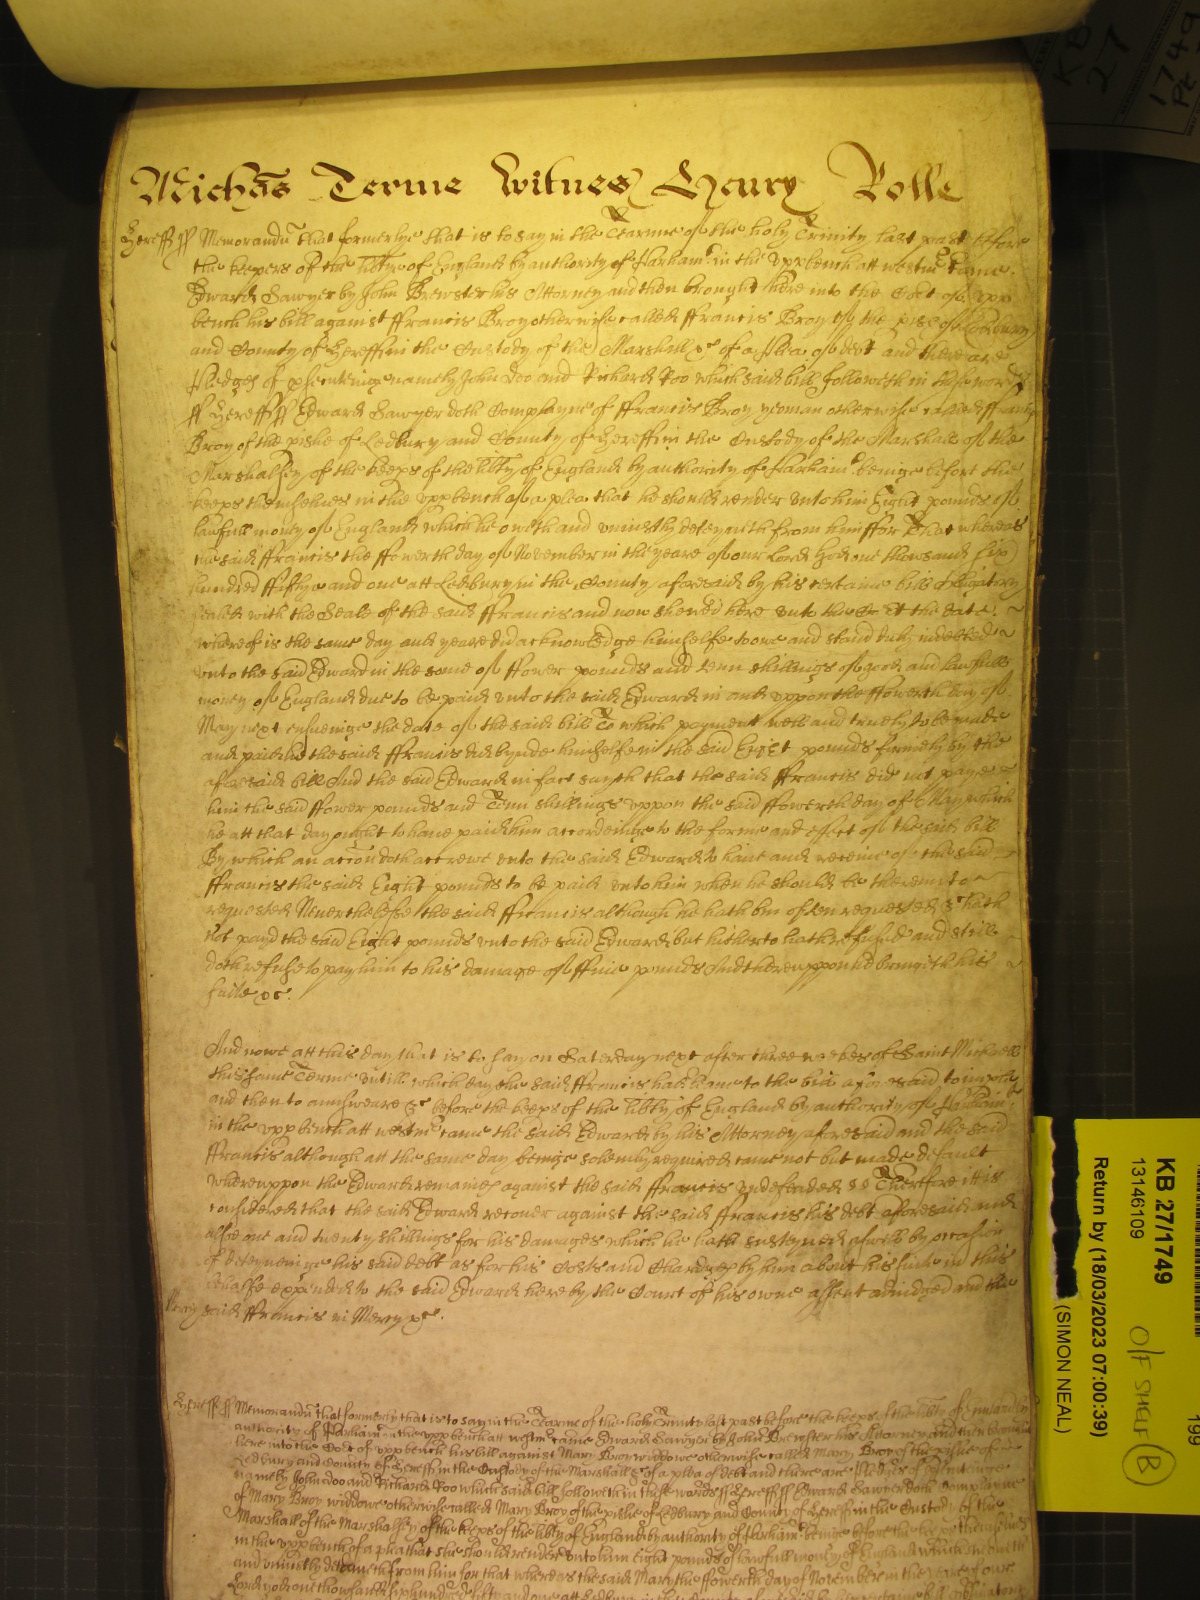 Michās Terme Witnes Henry Rolle
Hereff ss Memorandū that formerlye that is to say in the Tearme of the holy Trinity last past before
the keepers of the libtye of England by authority of Parliamt in the vppbench att westmr Came
Edward Sawyer by John Brewster his Attorney and then brought here into the Cort of vpp
bench his bill against ffrancis Broy otherwise called ffrancis Broy of the pish of Ledbury
and County of Hereff in the Custody of the Marshall &c of a plea of debt and there are
Pledges of psentinge namely John Doo and Richard Roo which said bill followeth in these words
ss Hereff ss Edward Sawyer doth Complayne of ffrancis Broy yeoman otherwise called ffrancis
Broy of the pishe of Ledbury and County of Hereff in the Custody of the Marshall of the
Marshalsey of the keeps of the libty of England by authority of Parliamt beinge before the
keeps themselves in the vppbench of a plea that he should render vnto him Eight pounds of
lawfull money of England which he oweth and vniustly deteyneth from him ffor That whereas
the said ffrancis the ffowerth day of November in the yeare of our Lord God one thowsand six
hundred fiftye and one att Ledbury in the County aforesaid by his certaine bill obligatory
sealed with the Seale of the said ffrancis and now shewed here vnto the Cort the date
whereof is the same day and yeare did acknowledge himselfe to owe and stand truly indebted
vnto the said Edward in the some of ffower pounds and tenn shillings of good and lawfull
money of England due to be paid vnto the said Edward in and vppon the ffowerth day of
May next ensueinge the date of the said bill To which payment well and truely to be made
and paid the said ffrancis did bynde himselfe in the said Eight pounds firmely by the
aforesaid bill And the said Edward in fact sayth that the said ffrancis did not paye
him the said ffower pounds and Tenn shillings vppon the said ffowerth day of May which
he att that day ought to have paid him accordeinge to the forme and effect of the said bill
By which an accon doth accrewe vnto the said Edward to have and receive of the said
ffrancis the said Eight pounds to be paid vnto him when he should be therevnto
requested Neverthelesse the said ffrancis although he hath bin often requested &c hath
not payd the said Eight pounds vnto the said Edward but hitherto hath refused and still
doth refuse to pay him to his damage of ffive pounds And therevppon he bringeth his
suite &c.
And nowe att this day that is to say on Saterday next after three weekes of Saint Michaell
this same Terme vntill which day the said ffrancis had leave to the bill aforesaid to imple
and then to annsweare &c before the keeps of the libty of England by authority of Parliamt
in the vppbench att westmr came the said Edward by his Attorney aforesaid and the said
ffrancis although att the same day beinge solemly required came not but made default
wherevppon the Edward remaines against the said ffrancis vndefended &c Therefore itt is
considered that the said Edward recover against the said ffrancis his debt aforesaid and
alsoe one and twenty shillings for his damages which he hath susteyned aswell by occasion
of deteyneinge his said debt as for his Costs and Chardges by him about his suite in this
behalfe expended to the said Edward here by the Court of his owne assent adiudged and the
Mercy said ffrancis in Mercy &c.
Hereff ss Memorandū that formerly that is to say in the Tearme of the holy Trinity last past before the keeps of the libtie of England by
authority of Parliamt in the vppbench att westmr came Edward Sawyer by John Brewster his Attorney and then brought
here into the Cort of vppbench his bill against Mary Broy widdowe otherwise called Mary Broy of the pishe of
Ledbury and County of Hereff in the Custody of the Marshall &c of a plea of debt and there are Pledges of psentinge
namely John Doo and Richard Roo which said bill followeth in these words ss Hereff ss Edward Sawyer doth Complaine
of Mary Broy widdowe otherwise called Mary Broy of the pishe of Ledbury and County of Hereff in the Custody of the
Marshall of the Marshalsey of the keeps of the libty of England by authority of Parliamt beinge before the keeps themselves
in the vppbench of a plea that she should render vnto him eight pounds of lawfull money of England which she oweth
and vniustly deteineth from him for that whereas the said Mary the ffowerth day of November in the yeare of our
Lord god one thowsand six hundred fifty and one att Ledbury in the County aforesaid by
KB
27
1749
Pt
KB 27/1749
13146109
Return by (18/03/2023 07:00:39)
(SIMON NEAL)
O/F SHELF B
199